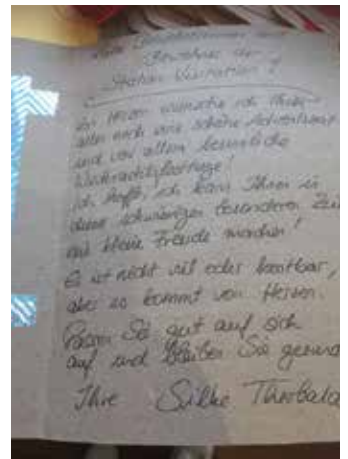 Liebe
Bewohner der
Station Visitation !
Von Herzen wünsche ich Ihnen
allen noch eine schöne Adventszeit
und vor allem besinnliche
Weihnachtsfeiertage!
Ich hoffe, ich kann Ihnen in
dieser schwierigen besonderen Zeit
eine kleine Freude machen!
Es ist nicht viel oder kostbar,
aber es kommt von Herzen.
Passen Sie gut auf sich
auf und bleiben Sie gesund
Ihre Silke